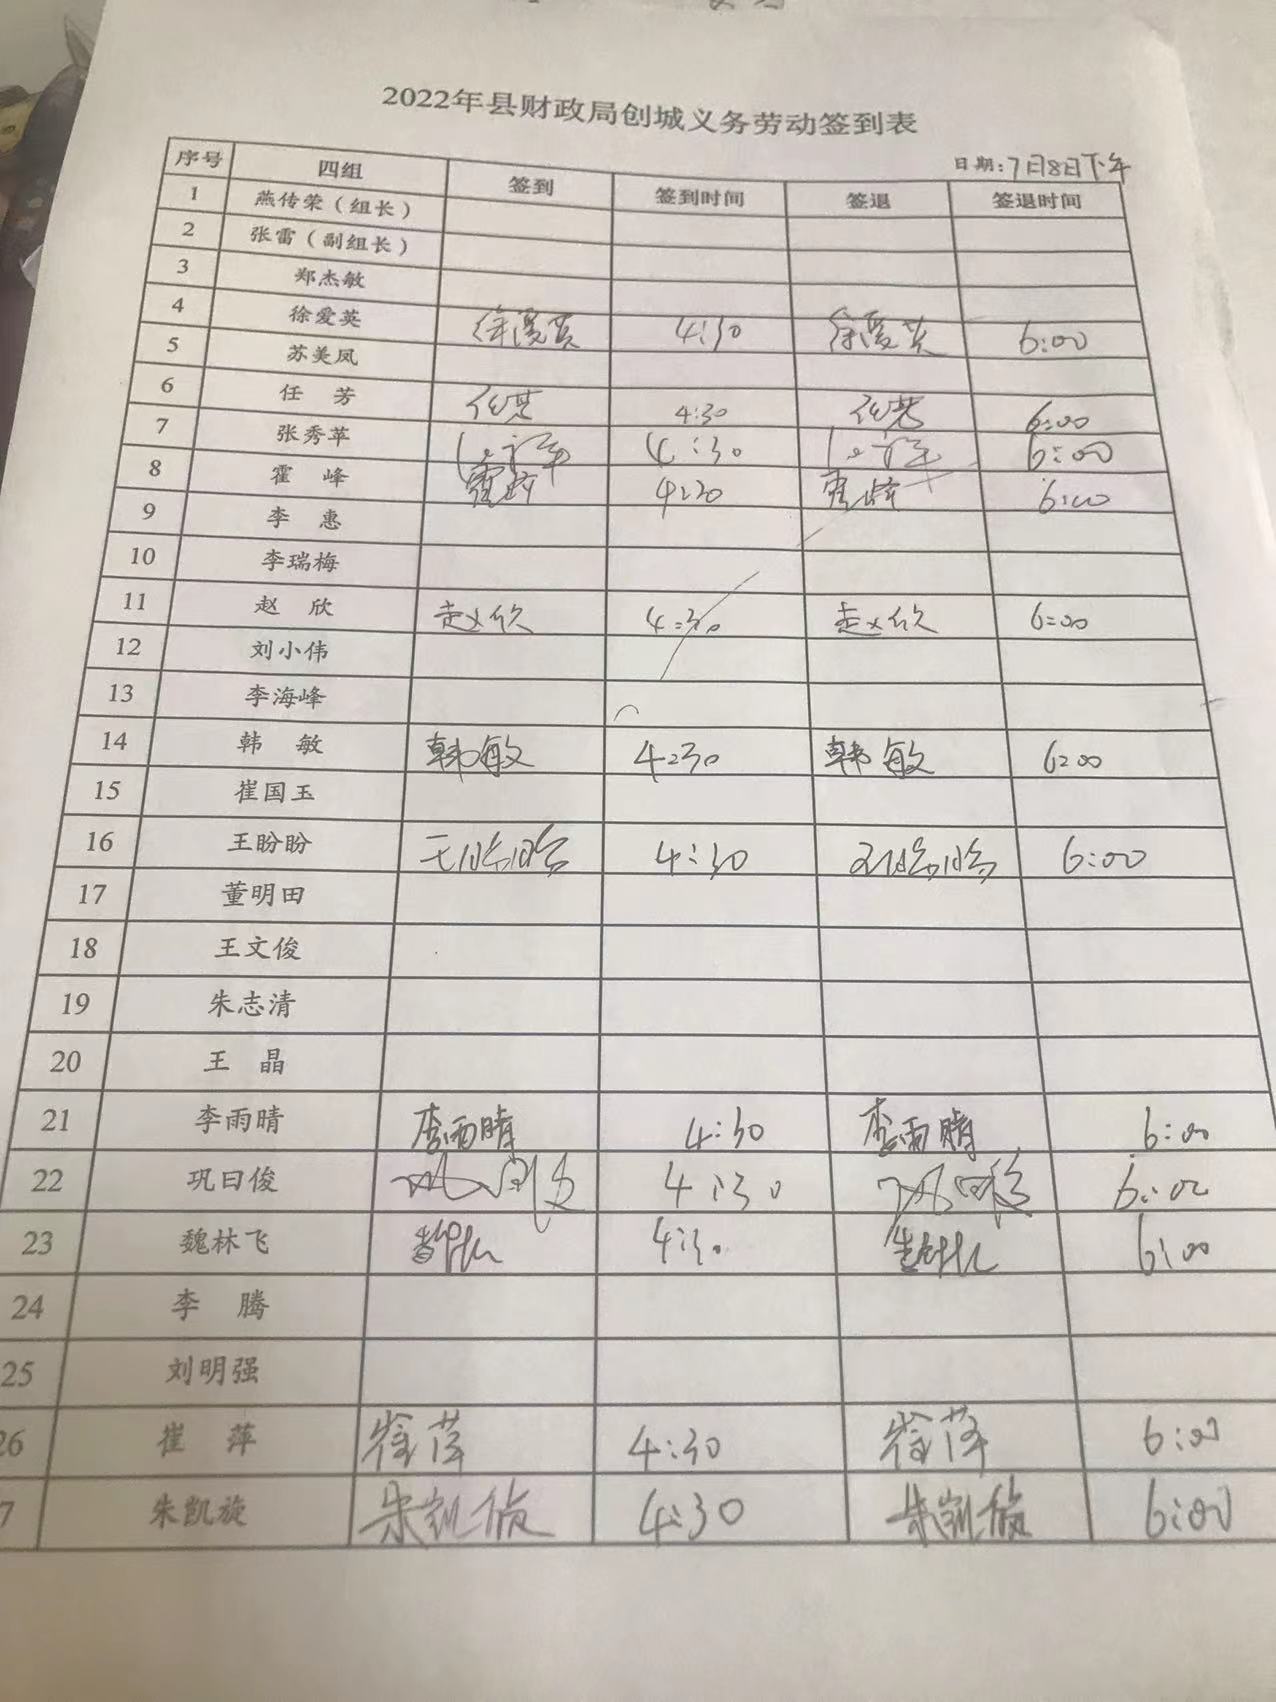 2022年县财政局创城义务劳动签到表
日期:7月8日下午
序号 四组 签到 签到时间 签退 签退时间
1 燕传荣（组长）
2 张雷（副组长）
3 郑杰敏
4 徐爱英 徐爱英 4:30 徐爱英 6:00
5 苏美凤
6 任 芳 任芳 4:30 任芳 6:00
7 张秀苹 4:30 6:00
8 霍 峰 霍峰 4:30 霍峰 6:00
9 李 惠
10 李瑞梅
11 赵 欣 赵欣 4:30 赵欣 6:00
12 刘小伟
13 李海峰
14 韩 敏 韩敏 4:30 韩敏 6:00
15 崔国玉
16 王盼盼 王盼盼 4:30 王盼盼 6:00
17 董明田
18 王文俊
19 朱志清
20 王 晶
21 李雨晴 李雨晴 4:30 李雨晴 6:00
22 巩曰俊 4:30 6:00
23 魏林飞 4:30 6:00
24 李 腾
25 刘明强
26 崔 萍 崔萍 4:30 崔萍 6:00
7 朱凯旋 朱凯旋 4:30 朱凯旋 6:00